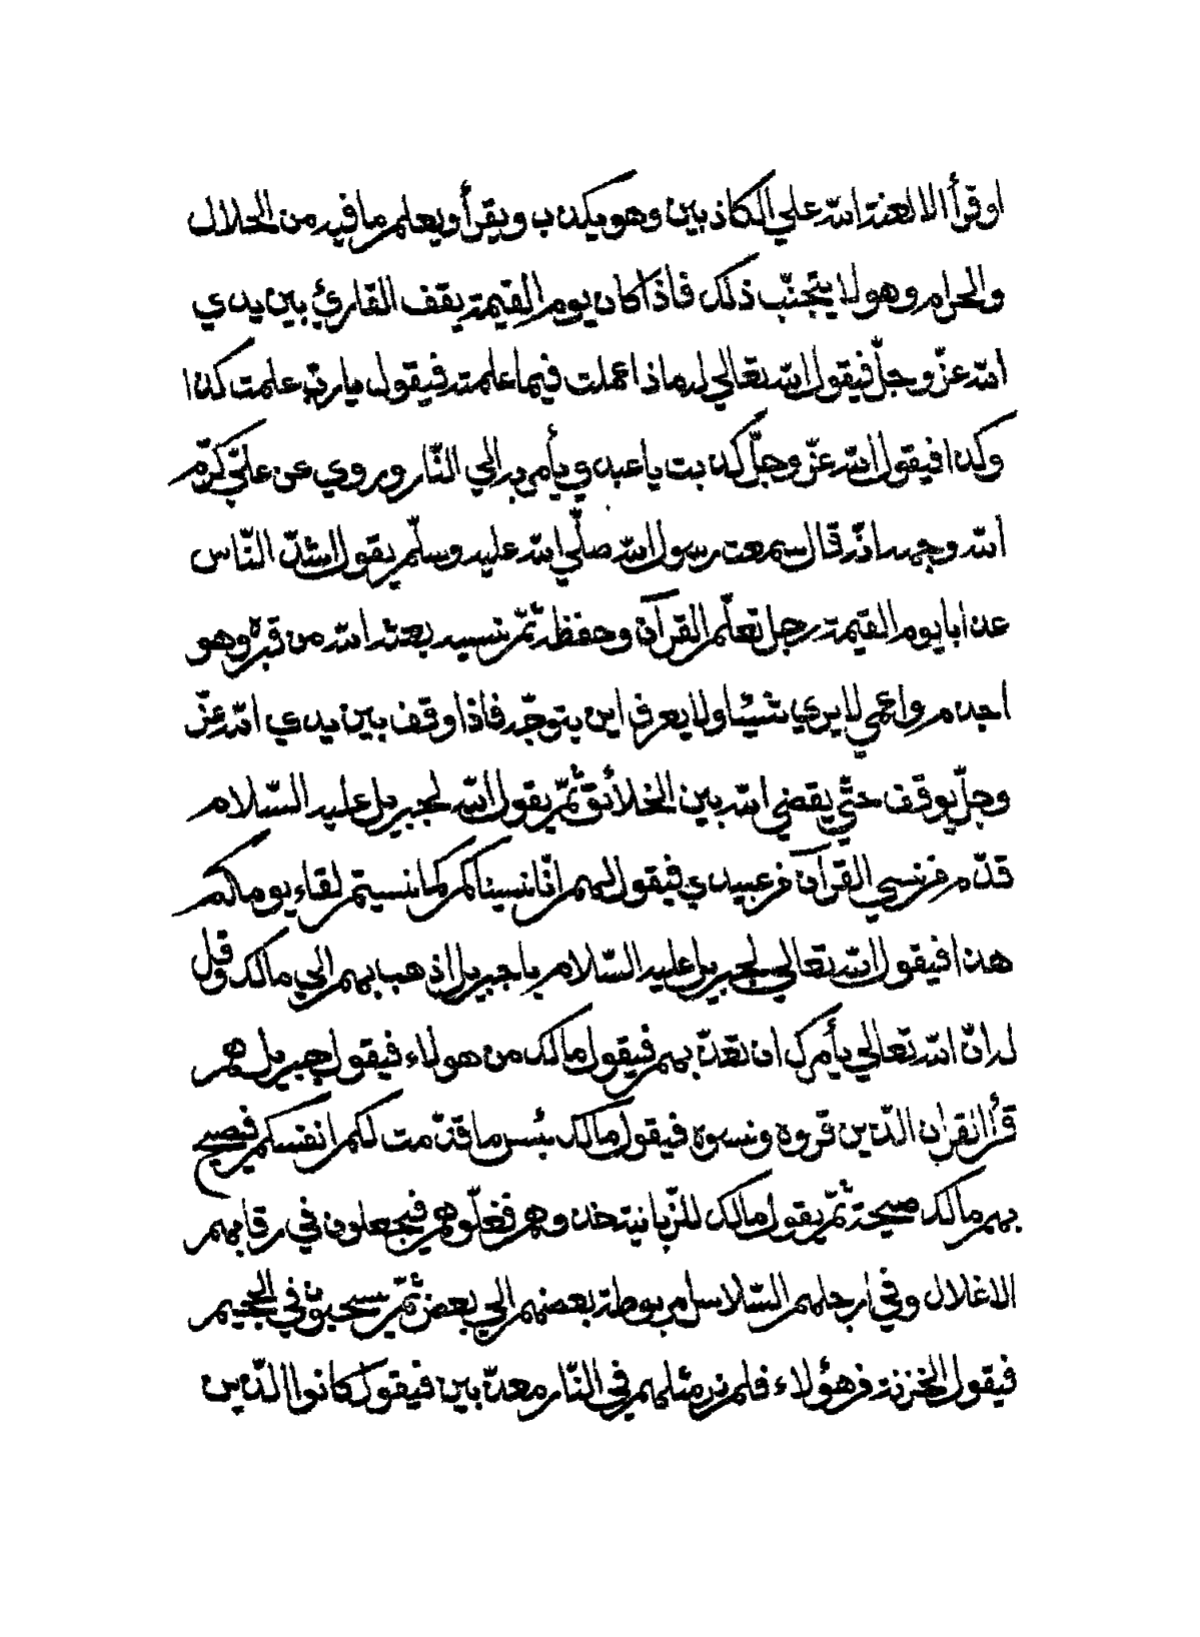 او قرأ الا لعنة الله علي الكاذبين وهو يكذب ويقرأ ويعلم ما فيه من الحلال
والحرام وهو لا يتجنّب ذلك فاذا كان يوم القيمة يقف القارئ بين يدي
الله عزّ وجلّ فيقول الله تعالي له ماذا عملت فيما علمته فيقول يا ربّ علمت كذا
وكذا فيقول الله عزّ وجلّ كذبت يا عبدي يأمر به الي النّار وروي عن عليّ كرّم
الله وجهه انّه قال سمعت رسول الله صلّي الله عليه وسلّم يقول اشدّ النّاس
عذابا يوم القيمة رجل تعلّم القرآن وحفظه ثمّ نسيه بعثه الله من قبره وهو
اجذم واعمي لا يري شيئا ولا يعرف اين يتوجّه فاذا وقف بين يدي الله عزّ
وجلّ يوقف حتّي يقضي الله بين الخلائق ثمّ يقول الله لجبريل عليه السّلام
قدّم من نسي القرآن من عبيدي فيقول لهم انّا نسيناكم كما نسيتم لقاء يومكم
هذا فيقول الله تعالي لجبريل عليه السّلام يا جبريل اذهب بهم الي مالك وقل
له انّ الله تعالي يأمرك ان تعذّبهم فيقول مالك من هولاء فيقول جبريل هم
قرأ القران الذّين قروه ونسوه فيقول مالك بئس ما قدّمت لكم انفسكم فيصيح
بهم مالك صيحة ثمّ يقول مالك للزّبانية خذوهم فغلّوهم فيجعلون في رقابهم
الاغلال وفي ارجلهم السّلاسل مربوطة بعضهم الي بعض ثمّ يسحبون في الجحيم
فيقول الخزنة من هؤلاء فلم نر مثلهم في النّار معذّبين فيقول كانوا الذّين